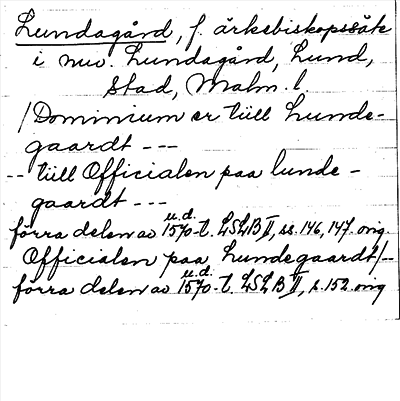 Lundagård, f. ärkebiskopssäte
i nuv. Lundagård, Lund,
Stad, Malm. l.
/Dominium er tiill Lunde-
gaardt ---
-- tiill Officialen paa lunde-
gaardt ---
förra delen av u.d. 1570-t. LSLB II, ss. 146, 147. orig.
Officialen paa Lundegaardt/--
förra delen av u.d. 1570-t. LSLB II, s. 152. orig